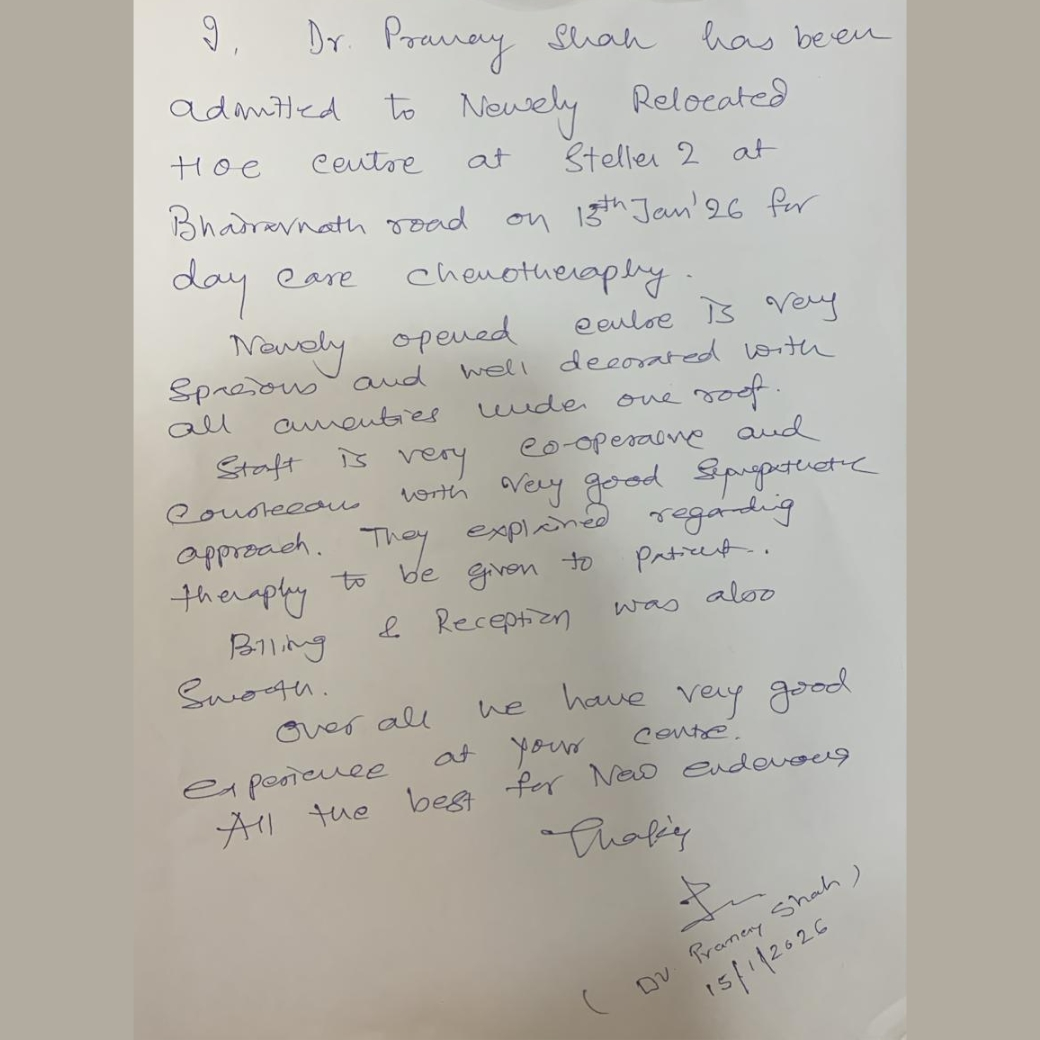 I, Dr. Pranay Shah has been
admitted to Newely Relocated
HOC centre at Steller 2 at
Bhairavnath road on 13th Jan'26 for
day care chemotheraphy.
Newely opened centre is very
spacious and well decorated with
all amenties under one roof.
Staff is very co-operative and
courteous with very good sympathetic
approach. They explained regarding
theraphy to be given to patient.
Billing & Reception was also
smooth.
Over all we have very good
experience at your centre.
All the best for New endevours
Thaks
( Dr. Pranay Shah )
15/1/2026